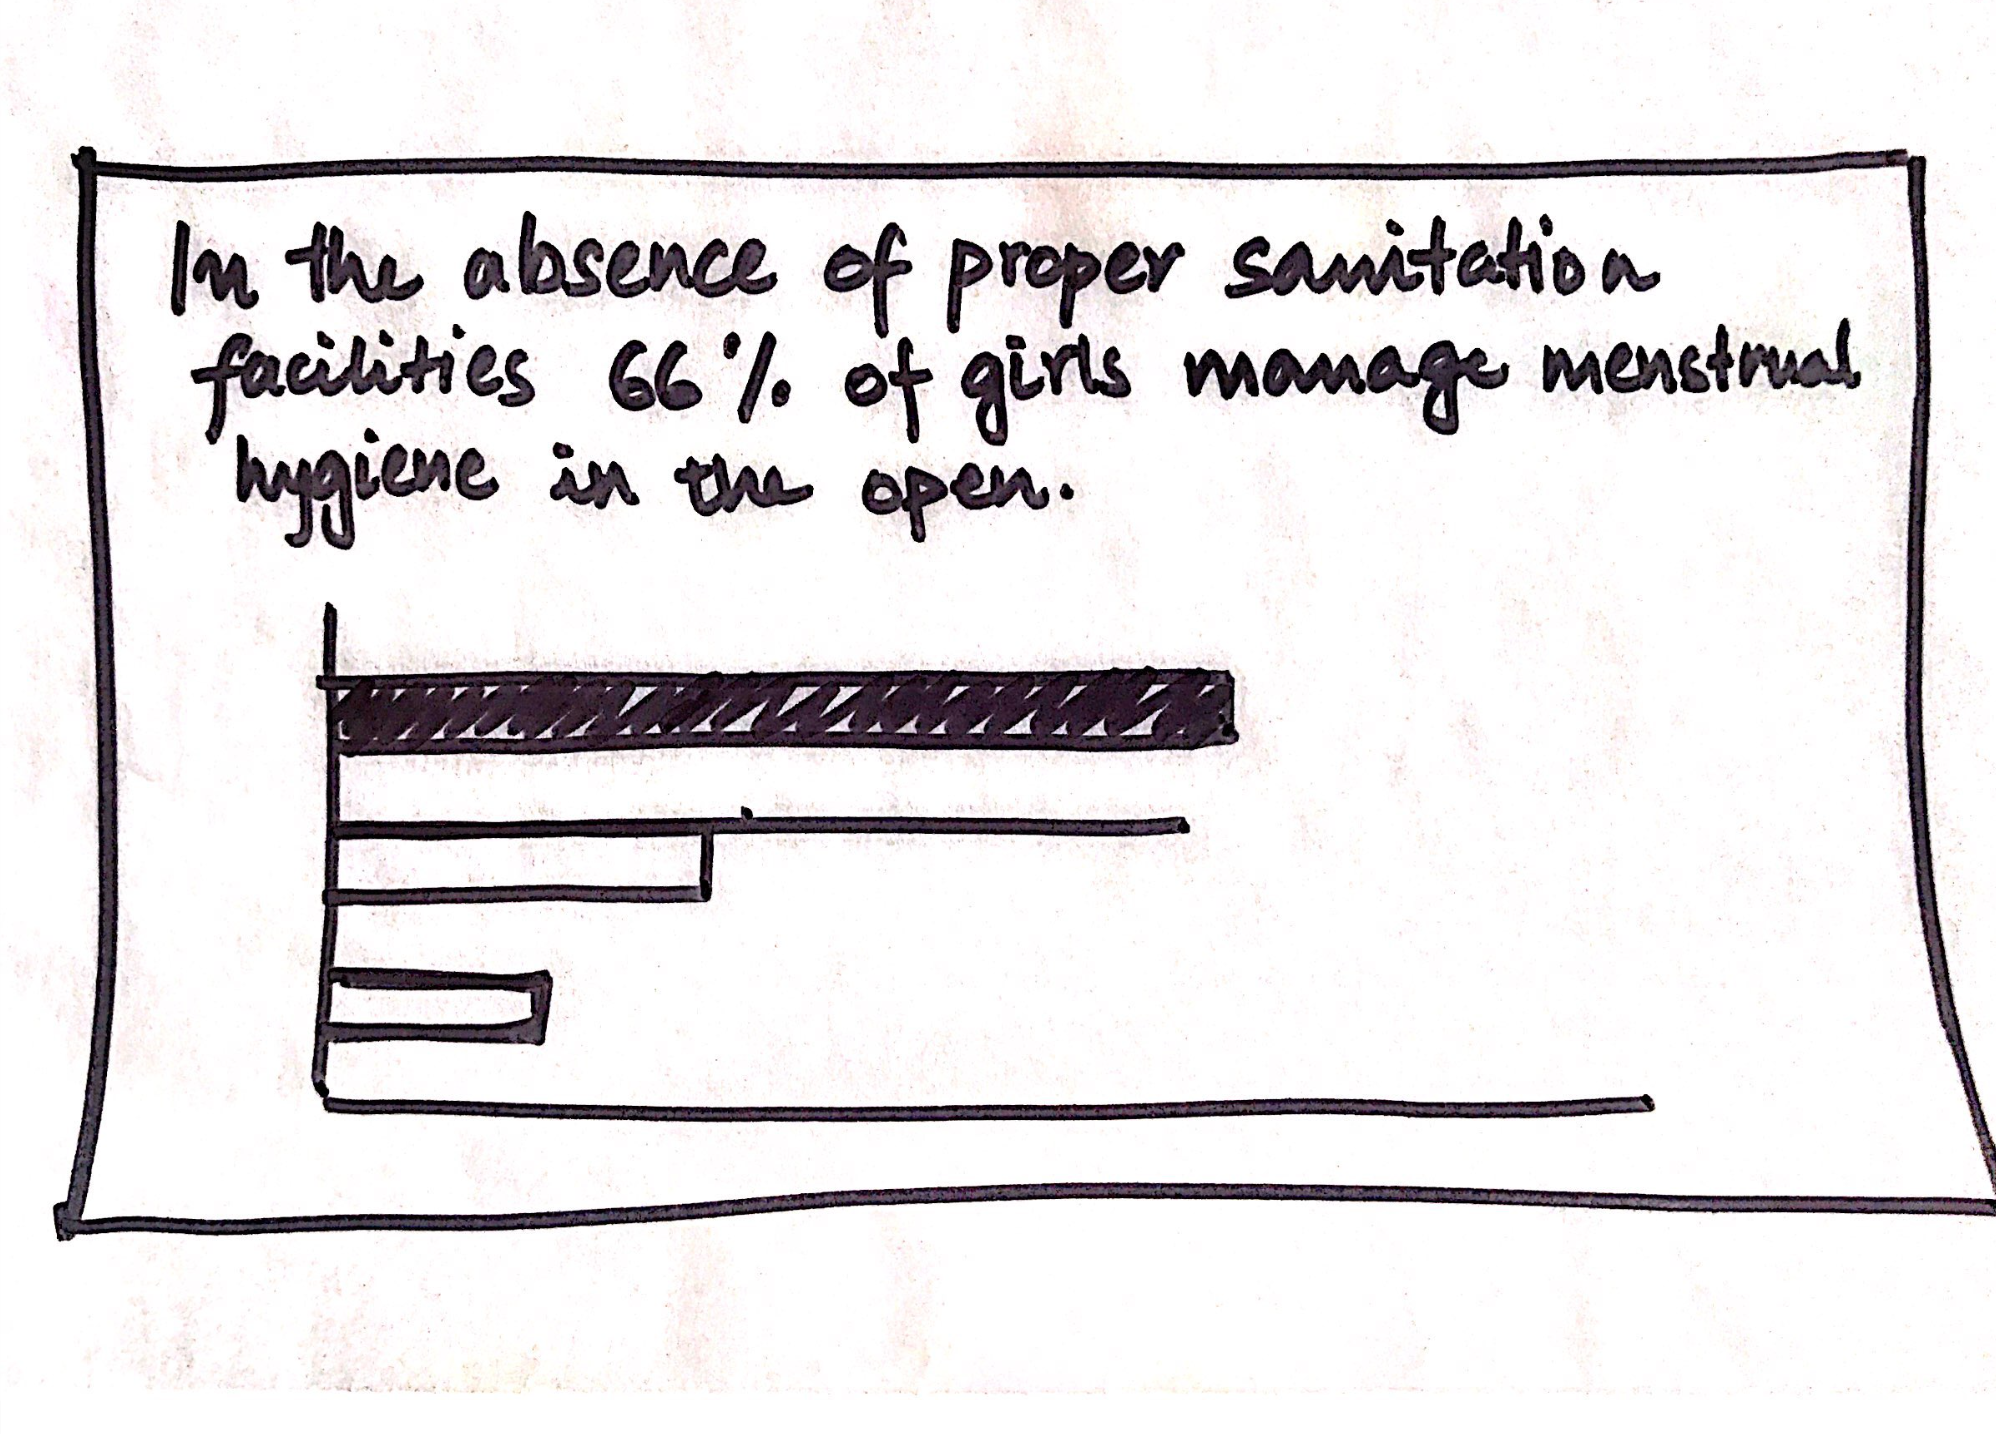 In the absence of proper sanitation
facilities 66% of girls manage menstrual
hygiene in the open.